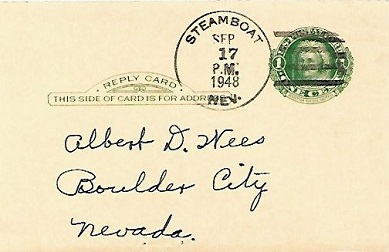 STEAMBOAT
SEP
17
P.M.
1948
NEV.
REPLY CARD
THIS SIDE OF CARD IS FOR ADDRESS
Albert D. Wees
Boulder City
Nevada.